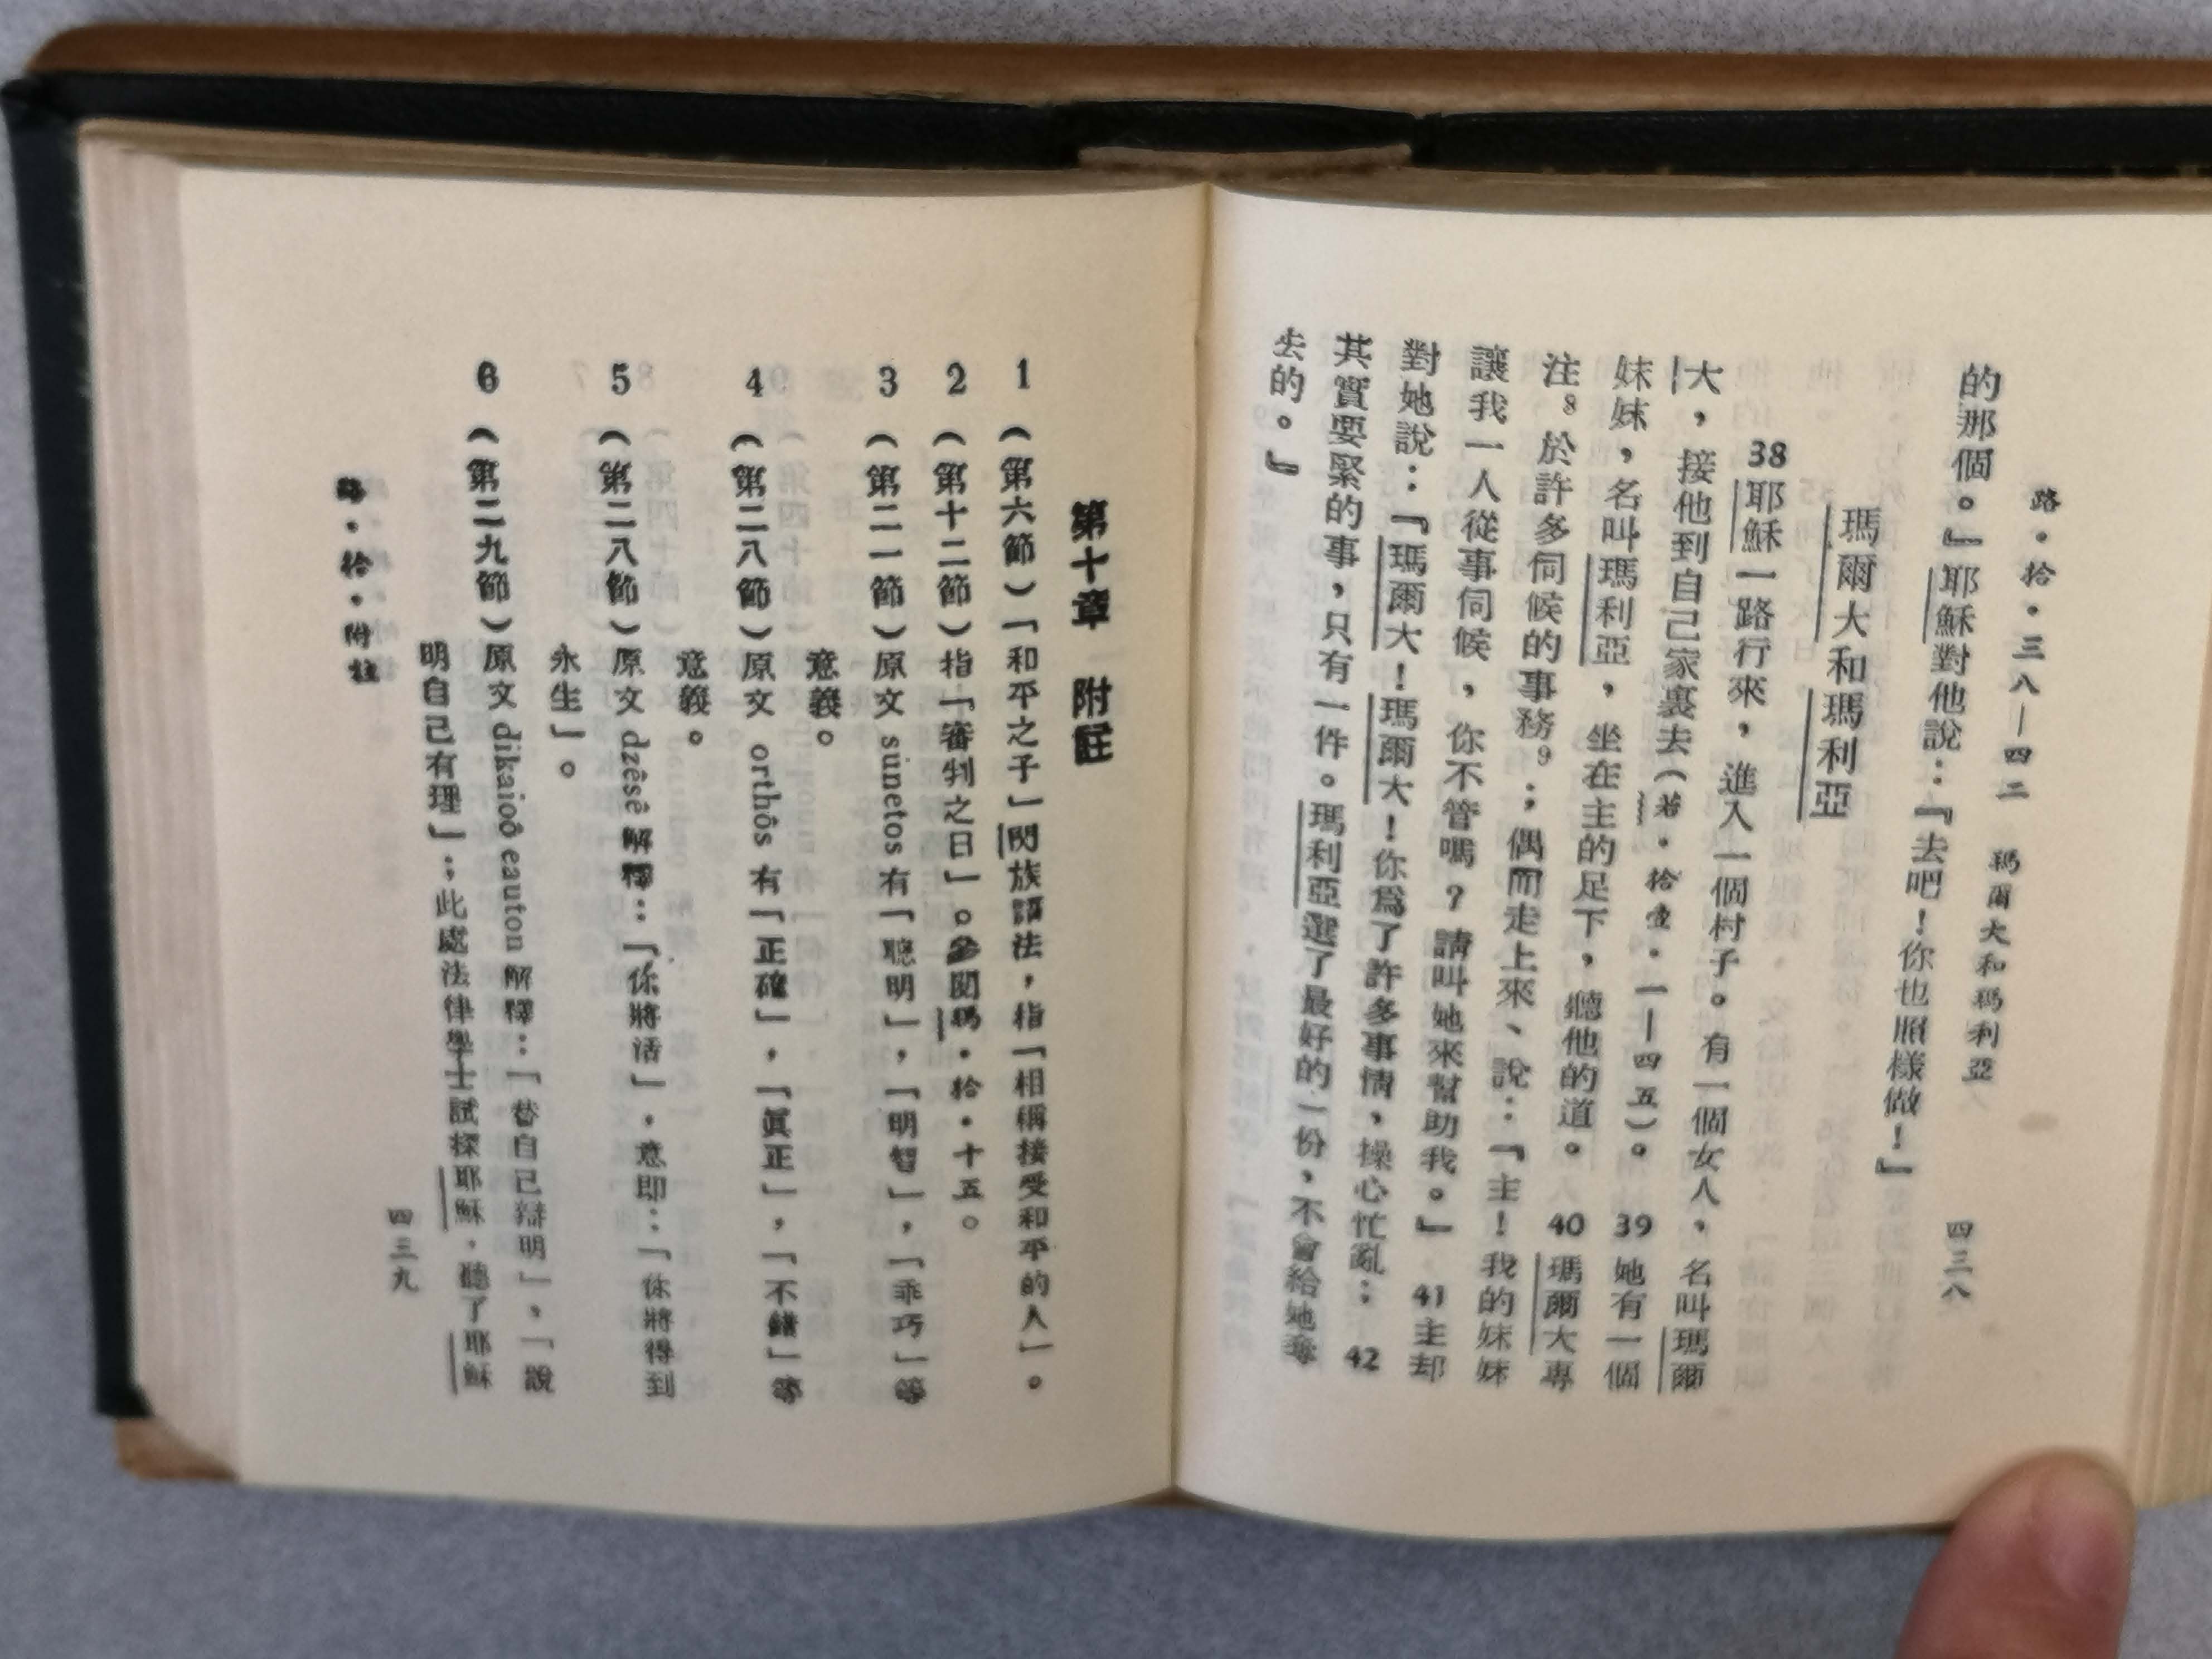 路・拾・三八—四二　瑪爾大和瑪利亞　四三八
的那個。』耶穌對他說：『去吧！你也照樣做！』
瑪爾大和瑪利亞
38耶穌一路行來，進入一個村子。有一個女人，名叫瑪爾
大，接他到自己家裏去（若・拾壹・一—四五）。39她有一個
妹妹，名叫瑪利亞，坐在主的足下，聽他的道。40瑪爾大專
注8於許多伺候的事務9；偶而走上來、說：『主！我的妹妹
讓我一人從事伺候，你不管嗎？請叫她來幫助我。』41主却
對她說：『瑪爾大！瑪爾大！你爲了許多事情，操心忙亂：42
其實要緊的事，只有一件。瑪利亞選了最好的一份，不會給她奪
去的。』
第十章　附註
1（第六節）「和平之子」閃族語法，指「相稱接受和平的人」。
2（第十二節）指「審判之日」。參閱瑪・拾・十五。
3（第二一節）原文 súnetos 有「聰明」，「明智」，「乖巧」等
意義。
4（第二八節）原文 orthôs 有「正確」，「眞正」，「不錯」等
意義。
5（第二八節）原文 dzêsê 解釋：「你將活」，意即：「你將得到
永生」。
6（第二九節）原文 dikaioô eauton 解釋：「替自己辯明」，「說
明自己有理」；此處法律學士試探耶穌，聽了耶穌
路・拾・附註　四三九